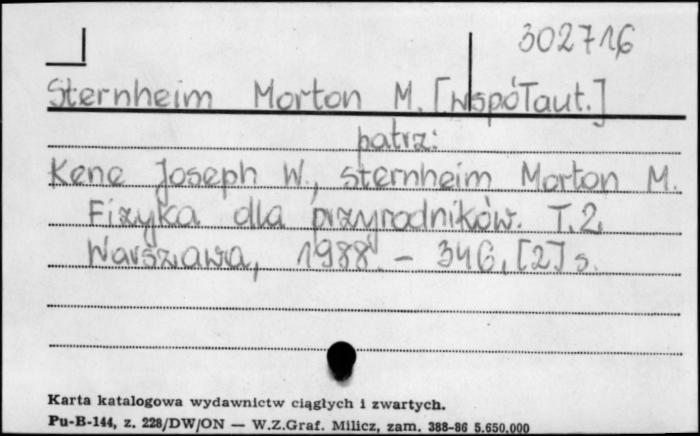 302716
Sternheim Morton M. [współaut.]
patrz:
Kene Joseph W., Sternheim Morton M.
Fizyka dla przyrodników. T.2.
Warszawa, 1988. – 346, [2] s.
Karta katalogowa wydawnictw ciągłych i zwartych.
Pu-B-144, z. 228/DW/ON — W.Z.Graf. Milicz, zam. 388-86 5.650.000